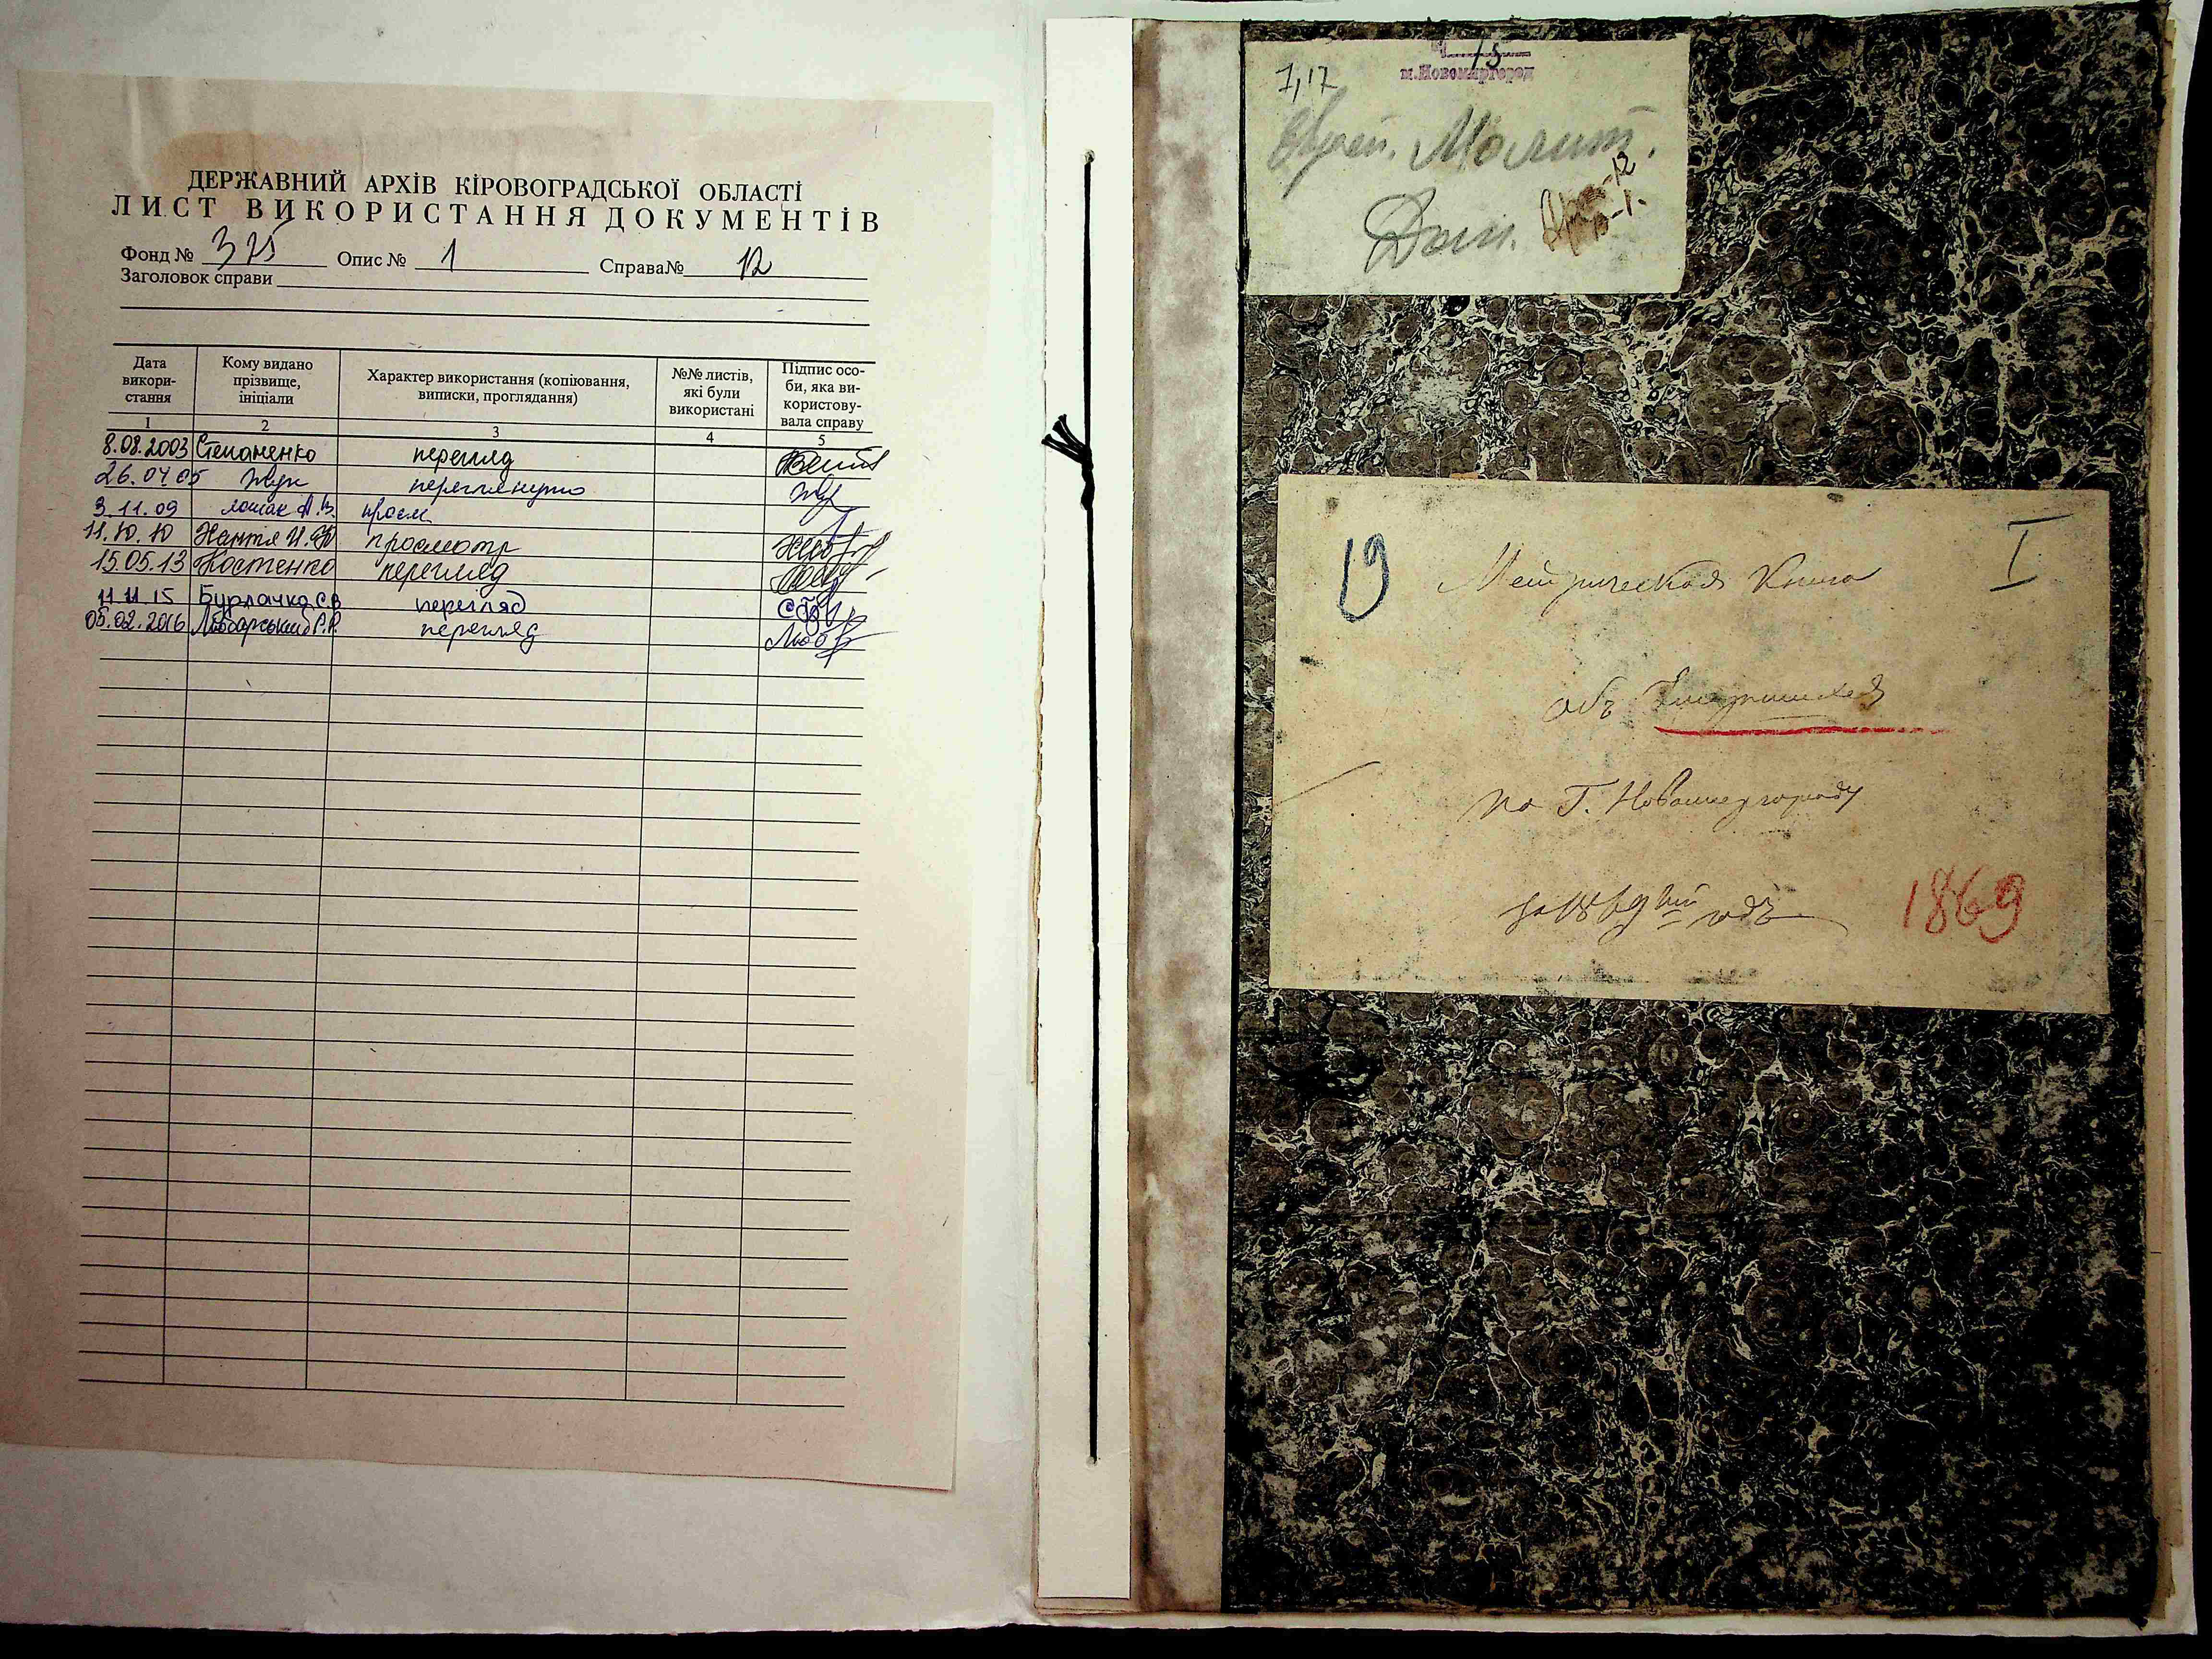 ДЕРЖАВНИЙ АРХІВ КІРОВОГРАДСЬКОЇ ОБЛАСТІ
ЛИСТ ВИКОРИСТАННЯ ДОКУМЕНТІВ
Фонд № 375 Опис № 1 Справа№ 12
Заголовок справи
Дата викори-стання
Кому видано прізвище, ініціали
Характер використання (копіювання, виписки, проглядання)
№№ листів, які були використані
Підпис осо-би, яка ви-користову-вала справу
1 2 3 4 5
8.08.2003 Степаненко перегляд
26.04.05 Жук переглянуто
3.11.09 А.В. просм.
11.10.10 просмотр
15.05.13 Костенко перегляд
11.11.15 Бурлачко С.В перегляд
05.02.2016 Любарський Р.Р. перегляд
15
м.Новомиргород
1,17
Еврей. Молит.
Дом.
19 Метрическая Книга I
объ
по Г. Новомиргороду
за 1869й годъ
1869